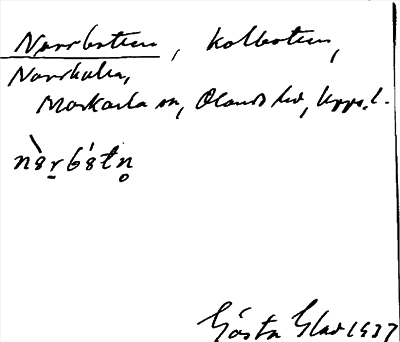 Norrbotten, Kolbotten,
Norrkulla,
Morkarla sn, Olands hd, Upps. l.
nòrbótn̥
Gösta Glad 1937